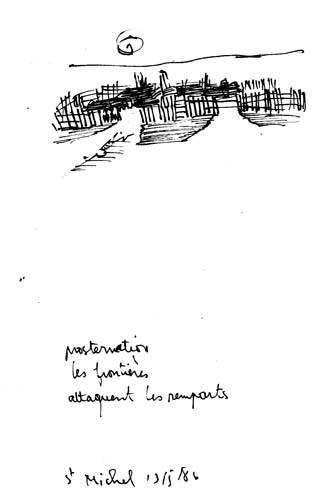 prosternation
les frontières
attaquent les remparts
St Michel 13/5/86